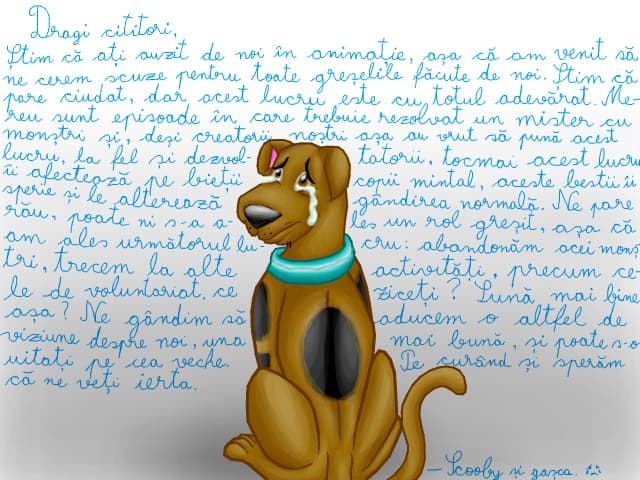 Dragi cititori,
Știm că ați auzit de noi în animatie, așa că am venit să
ne cerem scuze pentru toate greșelile făcute de noi. Știm că
pare ciudat, dar acest lucru este cu totul adevărat. Me-
reu sunt episoade în care trebuie rezolvat un mister cu
monștri și, deși creatorii noștri așa au vrut să pună acest
lucru, la fel și dezvol- tatorii, tocmai acest lucru
îi afectează pe bieții copii mintal, aceste bestii îi
sperie și le alterează gândirea normală. Ne pare
rău, poate ni s-a a- les un rol greșit, așa că
am ales următorul lu- cru: abandonăm acei monș-
tri, trecem la alte activități, precum ce-
le de voluntariat, ce ziceți? Sună mai bine
așa? Ne gândim să aducem o altfel de
viziune despre noi, una mai bună, și poate s-o
uitați pe cea veche. Pe curând și sperăm
că ne veți ierta.
— Scooby și gașca.